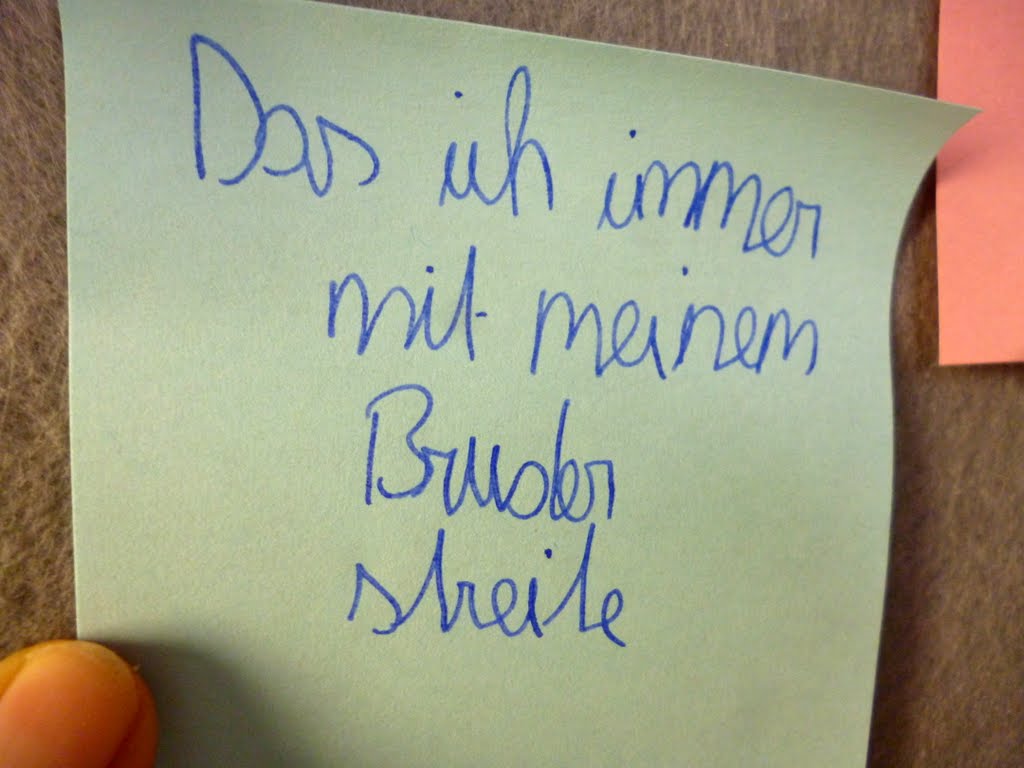 Das ich immer
mit meinem
Bruder
streite